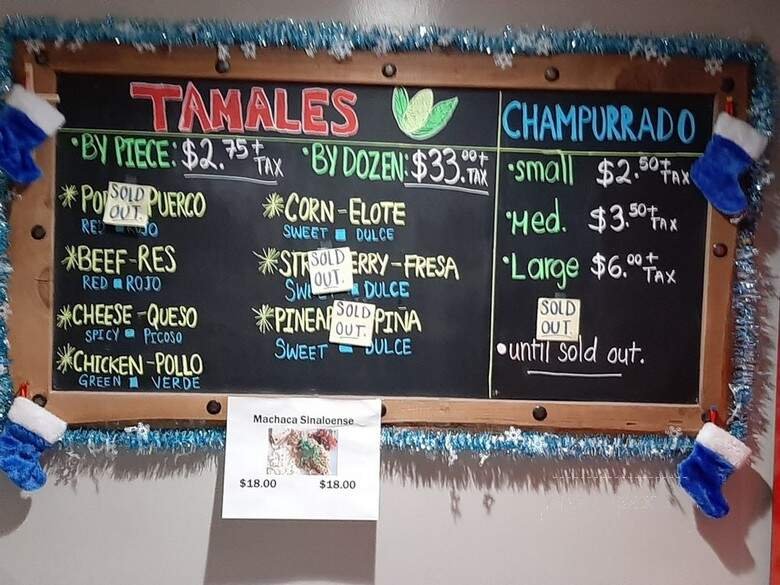 TAMALES
•BY PIECE: $2.75+ TAX
•BY DOZEN: $33.00+ TAX
SOLD OUT.
PUERCO
*BEEF-RES
RED ROJO
*CHEESE-QUESO
SPICY PICOSO
*CHICKEN-POLLO
GREEN VERDE
*CORN-ELOTE
SWEET DULCE
SOLD OUT.
ERRY-FRESA
DULCE
SOLD OUT.
PIÑA
SWEET DULCE
CHAMPURRADO
•small $2.50+ TAX
•Med. $3.50+ TAX
•Large $6.00+ TAX
SOLD OUT.
•until sold out.
Machaca Sinaloense
$18.00 $18.00